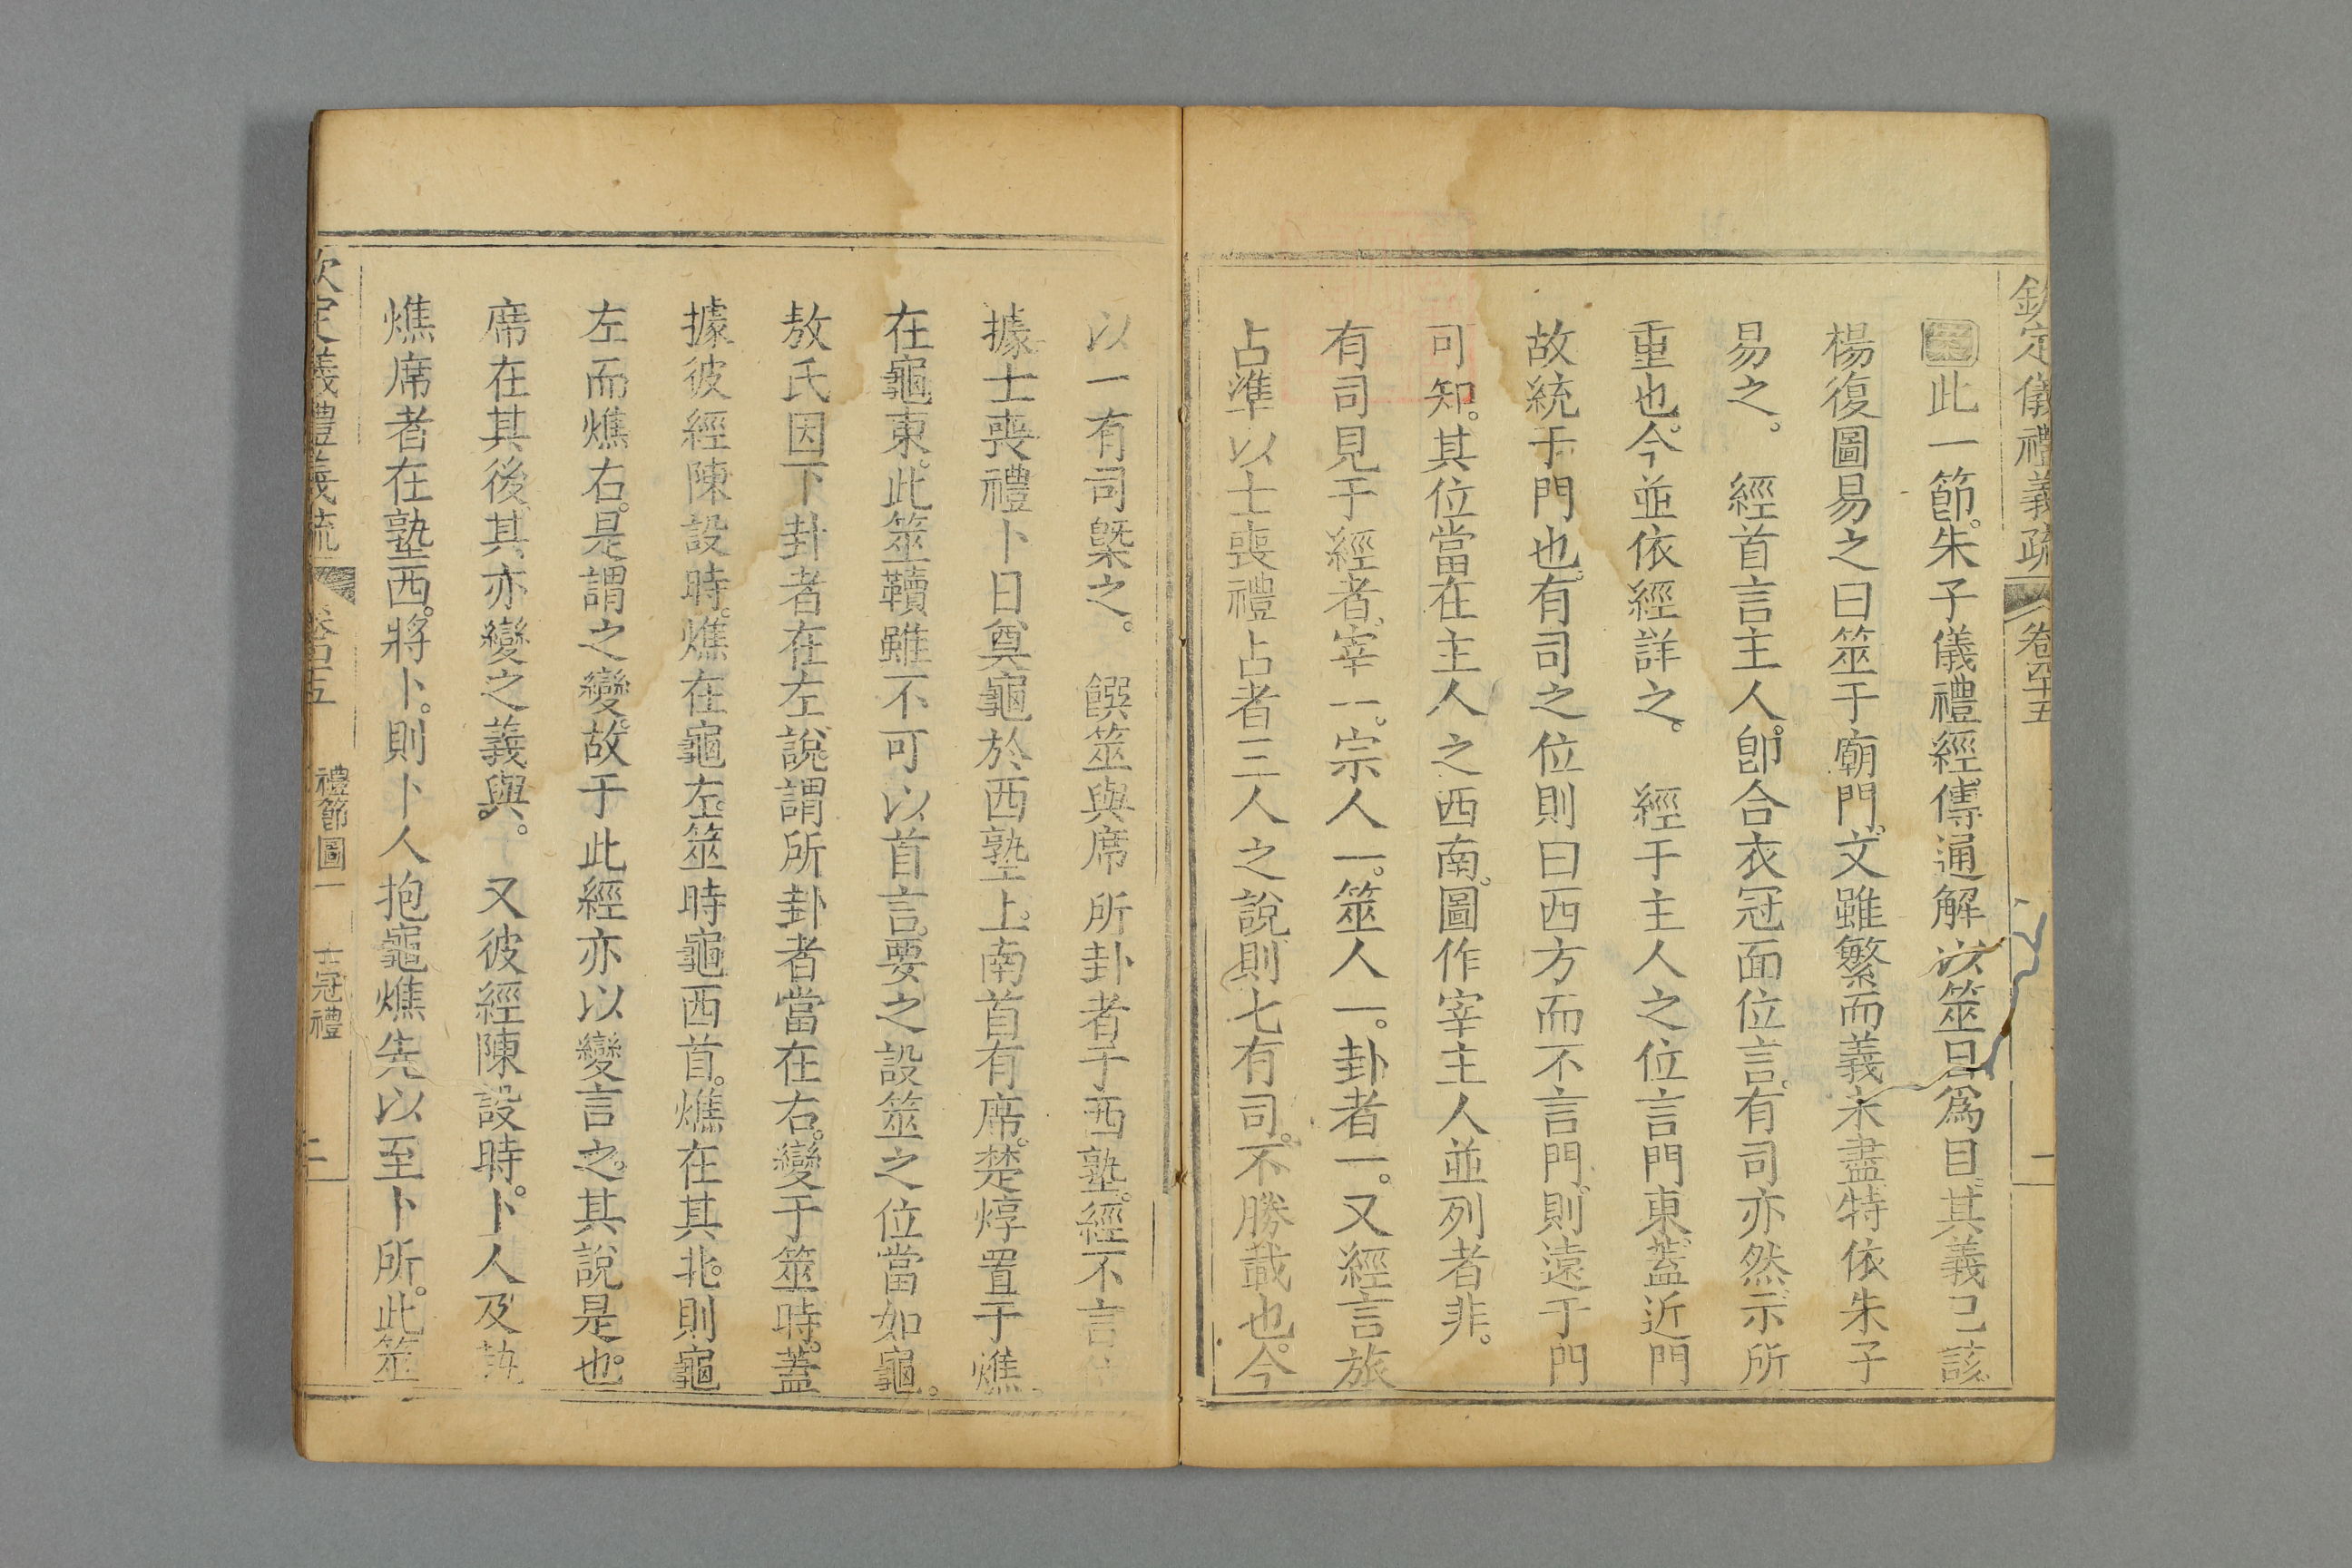 欽定儀禮義疏 卷四十五 一
此一節。朱子儀禮經傳通解以筮日爲目。其義已該。
楊復圖易之曰筮于廟門。文雖繁而義未盡。特依朱子
易之。 經首言主人。卽合衣冠面位言。有司亦然。示所
重也。今並依經詳之。 經于主人之位言門東。蓋近門
故統于門也。有司之位則曰西方而不言門。則遠于門
可知。其位當在主人之西南。圖作宰主人並列者非。
有司見于經者。宰一。宗人一。筮人一。卦者一。又經言旅
占準以士喪禮占者三人之說。則七有司。不勝載也。今
以一有司槩之。 饌筮與席所卦者于西塾。經不言
據士喪禮卜日奠龜於西塾上。南首有席。楚焞置于燋。
在龜東。此筮韇雖不可以首言。要之設筮之位當如龜。
敖氏因下卦者在左。說謂所卦者當在右。變于筮時。蓋
據彼經陳設時。燋在龜左。筮時龜西首。燋在其北。則龜
左而燋右。是謂之變。故于此經亦以變言之。其說是也。
席在其後。其亦變之義與。 又彼經陳設時。卜人及執
燋席者在塾西。將卜。則卜人抱龜燋先以至卜所。此筮
欽定儀禮義疏 卷四十五 禮節圖一 士冠禮